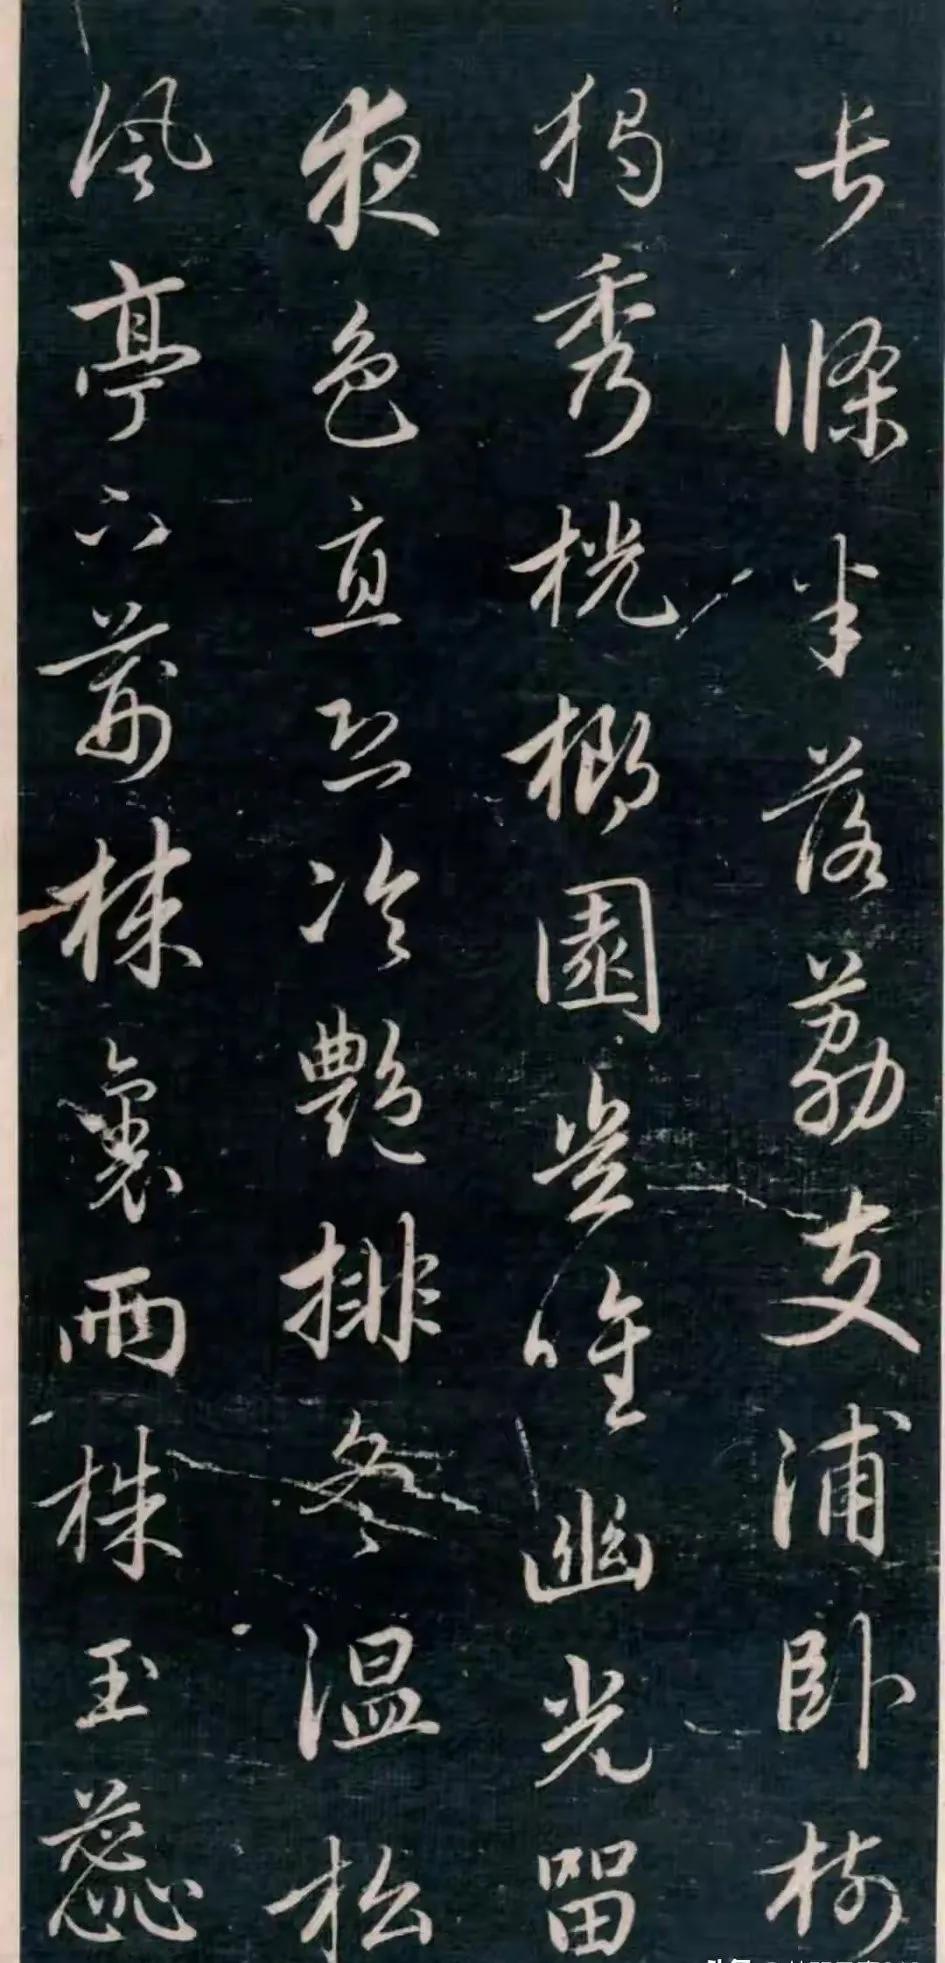 長條半落荔支浦臥樹
獨秀桄榔園豈唯幽光留
夜色直恐冷艷排冬溫松
風亭下荊棘裏兩株玉蕊